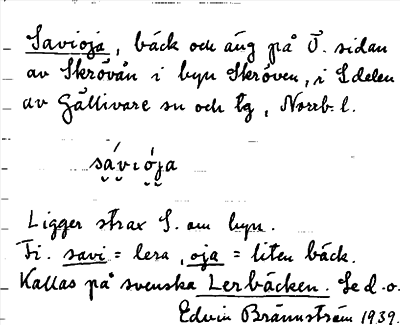 Savioja, bäck och äng på Ö. sidan
av Skröván i byn Skröven, i S delen
av Gällivare sn och tg, Norrb. l.
sáviója
Ligger strax S. om byn.
Fi. savi = lera, oja = liten bäck.
Kallas på svenska Lerbäcken. Se d. o.
Edvin Brännström 1939.